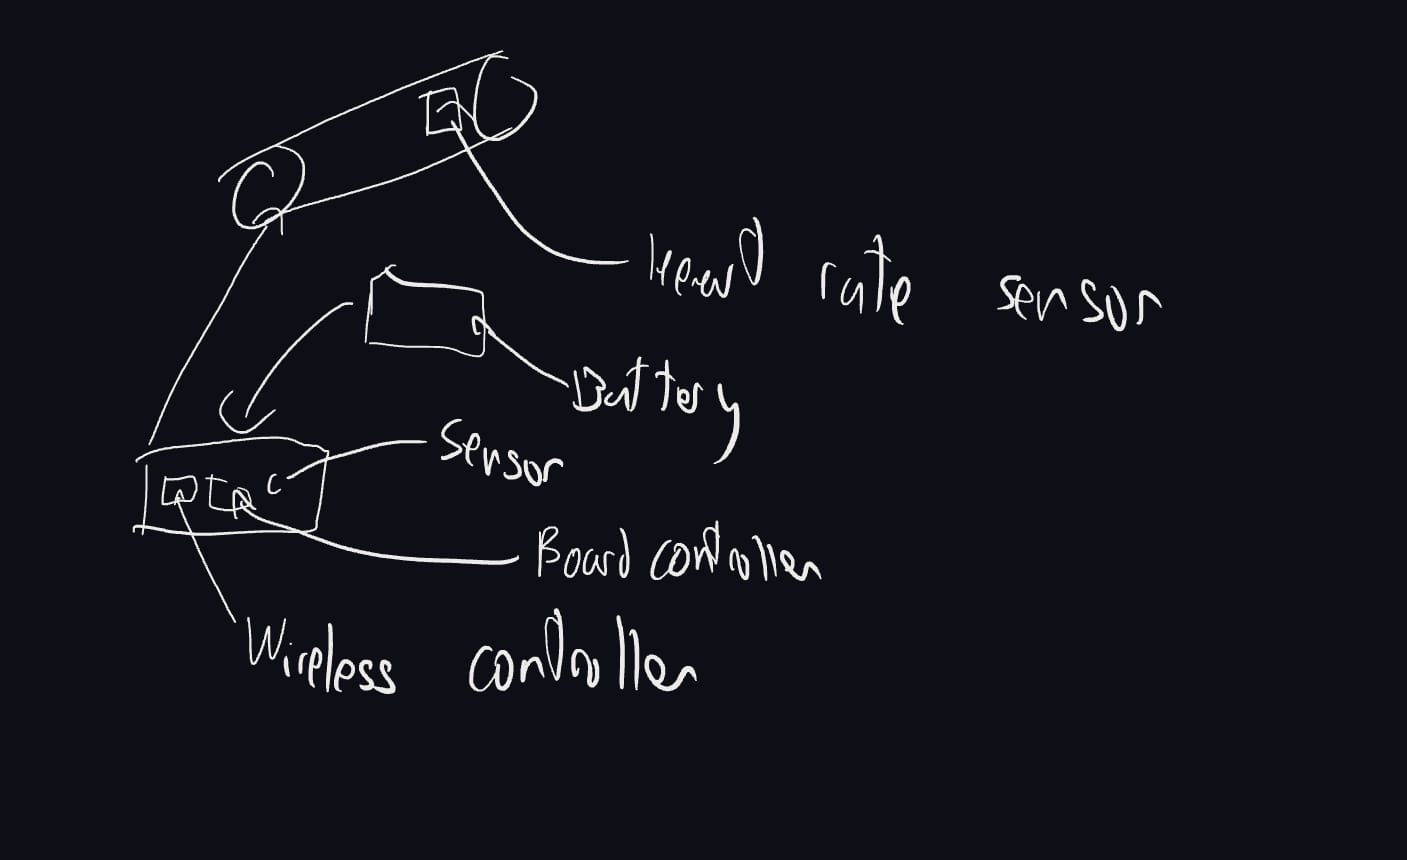 Heart rate sensor
Battery
Sensor
Board controller
Wireless controller